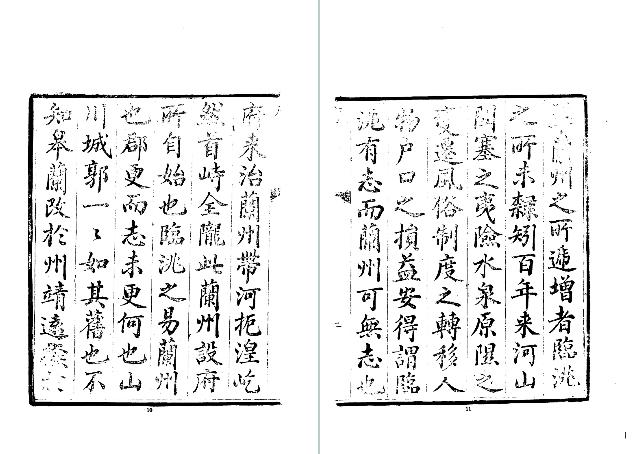 府來治蘭州帶河扼湟屹
然首峙全隴此蘭州設府
所自始也臨洮之易蘭州
也郡更而志未更何也山
川城郭一〻如其舊也不
知皋蘭改於州靖遠
10
蘭州之所遞增者臨洮
之所未隸矧百年來河山
關塞之夷險水泉原隰之
變遷風俗制度之轉移人
物戶口之損益安得謂臨
洮有志而蘭州可無志也
11